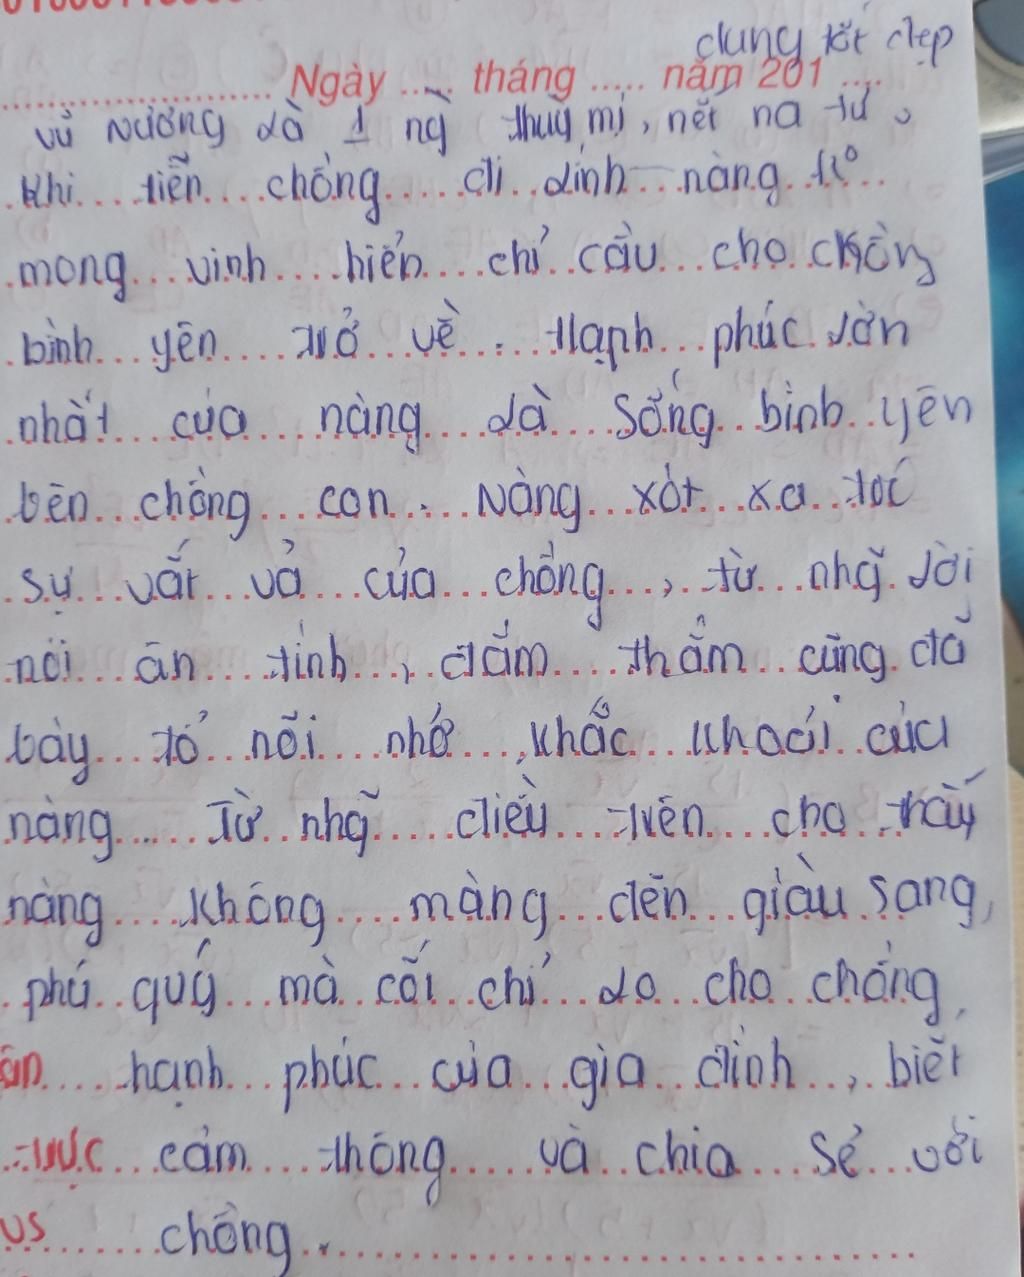 dung tốt đẹp
Ngày ..... tháng ..... năm 201 ....
Vũ Nương là 1 ng thuỳ mị, nết na tư
Khi tiễn chồng đi lính nàng k°
mong vinh hiển chỉ cầu cho chồng
bình yên trở về. Hạnh phúc lớn
nhất của nàng là sống bình yên
bên chồng con. Nàng xót xa trc
sự vất vả của chồng, từ nhg̃ lời
nói ân tình, đằm thắm cũng đã
bày tỏ nỗi nhớ, khắc khoải của
nàng. Từ nhg̃ điều trên cho thấy
nàng không màng đến giàu sang,
phú quý mà cốt chỉ lo cho chồng,
hạnh phúc của gia đình, biết
cảm thông và chia sẻ với
chồng.